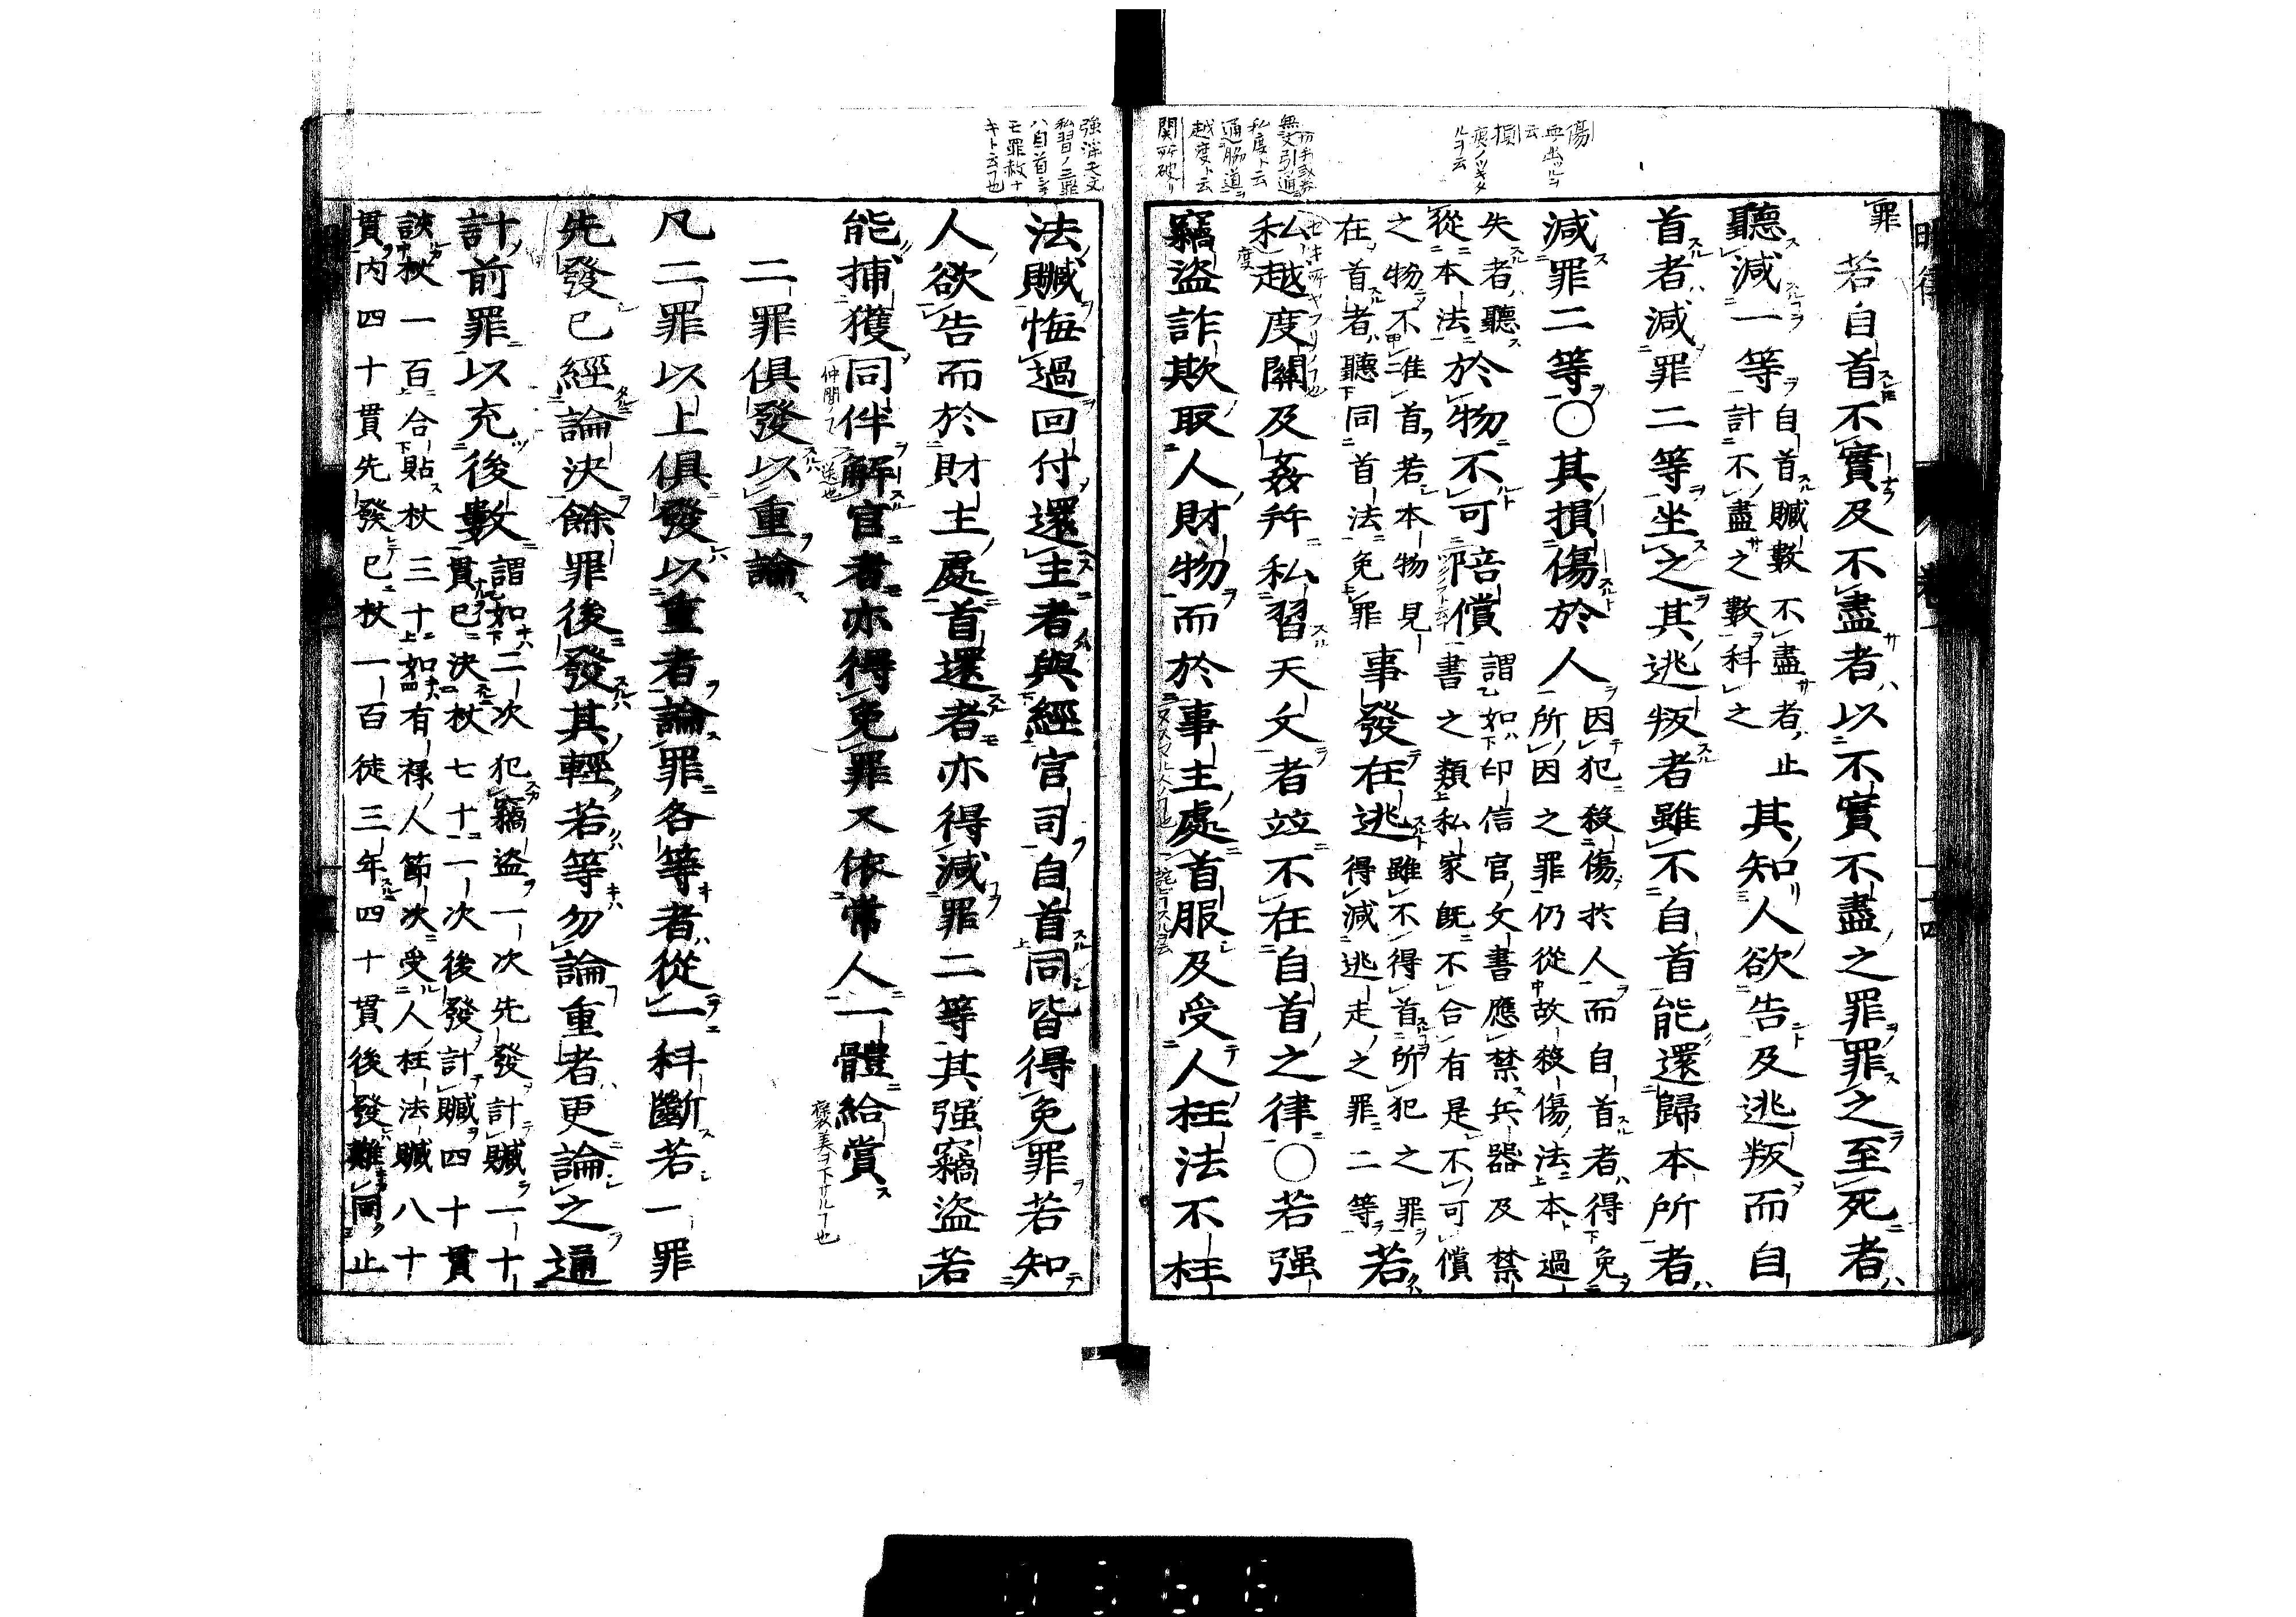 罪
若自首不實及不盡者以不實不盡之罪罪之至死者
聽減一等
自首贓數不盡者止
計不盡之數科之
其知人欲告及逃叛而自
首者減罪二等坐之其逃叛者雖不自首能還歸本所者
減罪二等○其損傷於人
因犯殺傷於人而自首者得免
所因之罪仍從故殺傷法本過
失者聽
從本法
於物不可陪償
謂如印信官文書應禁兵器及禁
書之類私家旣不合有是不可償
之物不准首若本物見
在首者聽同首法免罪
事發在逃
雖不得首所犯之罪
得減逃走之罪二等
若
私越度關及姦幷私習天文者竝不在自首之律○若强
竊盜詐欺取人財物而於事主處首服及受人枉法不枉
法贓悔過回付還主者與經官司自首同皆得免罪若知
人欲告而於財主處首還者亦得減罪二等其强竊盜若
能捕獲同伴解官者亦得免罪又依常人一體給賞
二罪俱發以重論
凡二罪以上俱發以重者論罪各等者從一科斷若一罪
先發已經論決餘罪後發其輕若等勿論重者更論之通
計前罪以充後數
謂如二次犯竊盜一次先發計贓一十
貫已決杖七十一次後發計贓四十貫
該杖一百合貼杖三十如有祿人節次受人枉法贓八十
貫內四十貫先發已杖一百徒三年四十貫後發難同止
傷
血出ツルヲ
云
損
痕ノツキタ
ルヲ云
無文引通
私度ト云
通脇道ヲ
越度ト云
關所破リ
强盜天文
私習ノ三罪
ハ自首シテ
モ罪赦ナ
キト云フ也
褒美ヲ下サルヽフ也